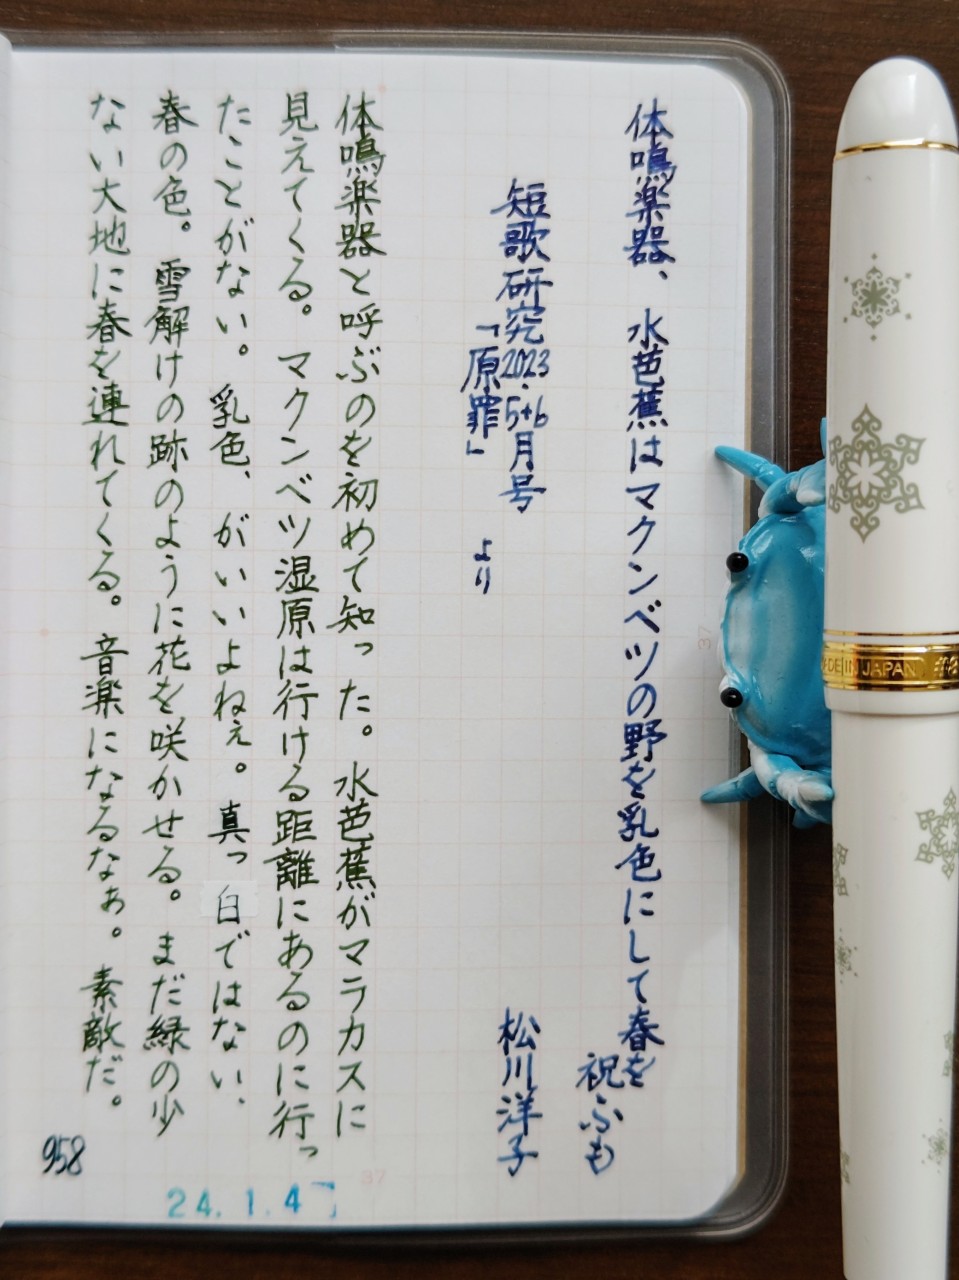 体鳴楽器、水芭蕉はマクンベツの野を乳色にして春を
祝ふも
短歌研究2023.5+6月号
「原罪」より
松川洋子
体鳴楽器と呼ぶのを初めて知った。水芭蕉がマラカスに
見えてくる。マクンベツ湿原は行ける距離にあるのに行っ
たことがない。乳色、がいいよねぇ。真っ白ではない、
春の色。雪解けの跡のように花を咲かせる。まだ緑の少
ない大地に春を連れてくる。音楽になるなぁ。素敵だ。
958
24.1.4
37
37
MADE IN JAPAN